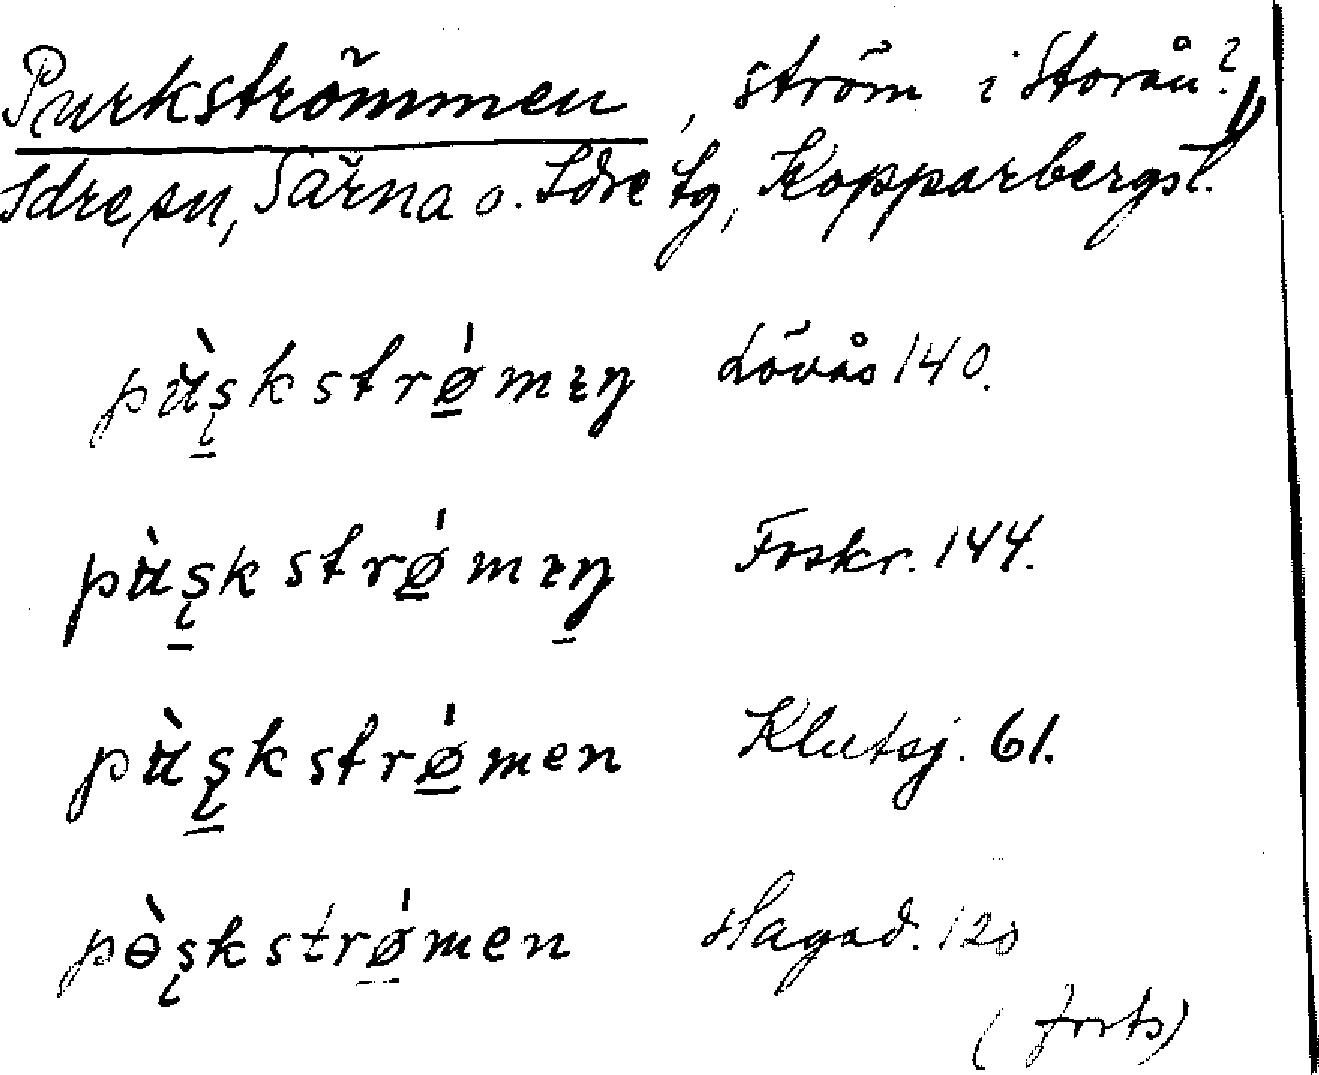 Purkströmmen, ström i Storån?
Idre sn, Särna o. Idre tg, Kopparbergs l.
pu̇̀s̨kstrǿ̲mın Lövås 140.
pu̇̀s̨kstrǿ̲mın Foskr. 144.
pu̇̀s̨kstrǿ̲men Klutsj. 61.
pɵ̀s̨kstrǿ̲men Hagad. 120
(forts)